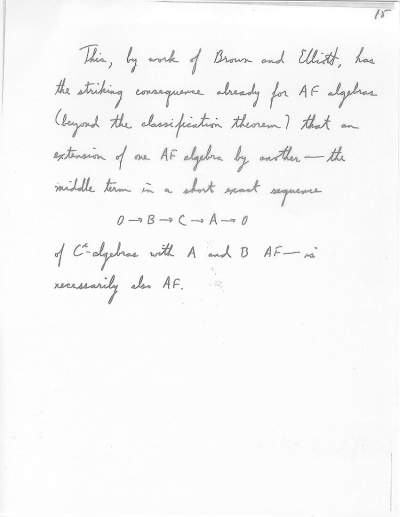 15
This, by work of Brown and Elliott, has
the striking consequence already for AF algebras
(beyond the classification theorem) that an
extension of one AF algebra by another — the
middle term in a short exact sequence
0 → B → C → A → 0
of C*-algebras with A and B AF — is
necessarily also AF.